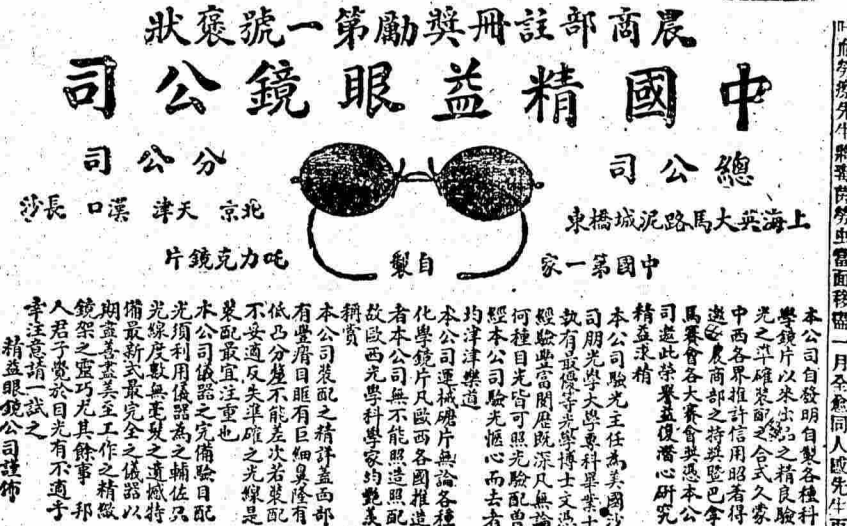 農商部註冊獎勵第一號褒狀
中國精益眼鏡公司
總公司
上海英大馬路泥城橋東
分公司
北京 天津 漢口 長沙
中國第一家
自製
吒力克鏡片
本公司自發明自製各種科
學鏡片以來出品之精良驗
光之準確裝配之合式久蒙
中西各界推許信用昭著得
邀農商部之特獎暨巴拿
馬賽會各大賽會獎憑本公
司邀此榮譽益復潛心研究
精益求精
本公司驗光主任為美國沙
司朋光學大學專科畢業士
執有最優等光學博士文憑
經驗豐富閱歷既深凡無論
何種目光皆可照光驗配曾
經本公司驗光愜心而去者
均津津樂道
本公司運械磨片無論各種
化學鏡片凡歐西各國推造
者本公司無不能照造照配
故歐西光學科學家均艷羨
稱賞
本公司裝配之精詳蓋面部
有豐廥目眶有巨細鼻隆有
低凸分釐不能差次若裝配
不妥適反失準確之光線是
裝配最宜注重也
本公司儀器之完備驗目配
光須利用儀器為之輔佐只
光線度數無毫髮之遺憾特
備最新式最完全之儀器以
期盡善盡美至工作之精緻
鏡架之靈巧尤其餘事 邦
人君子覺於目光有不適乎
幸注意請一試之
精益眼鏡公司謹佈
一月全愈同人感先生